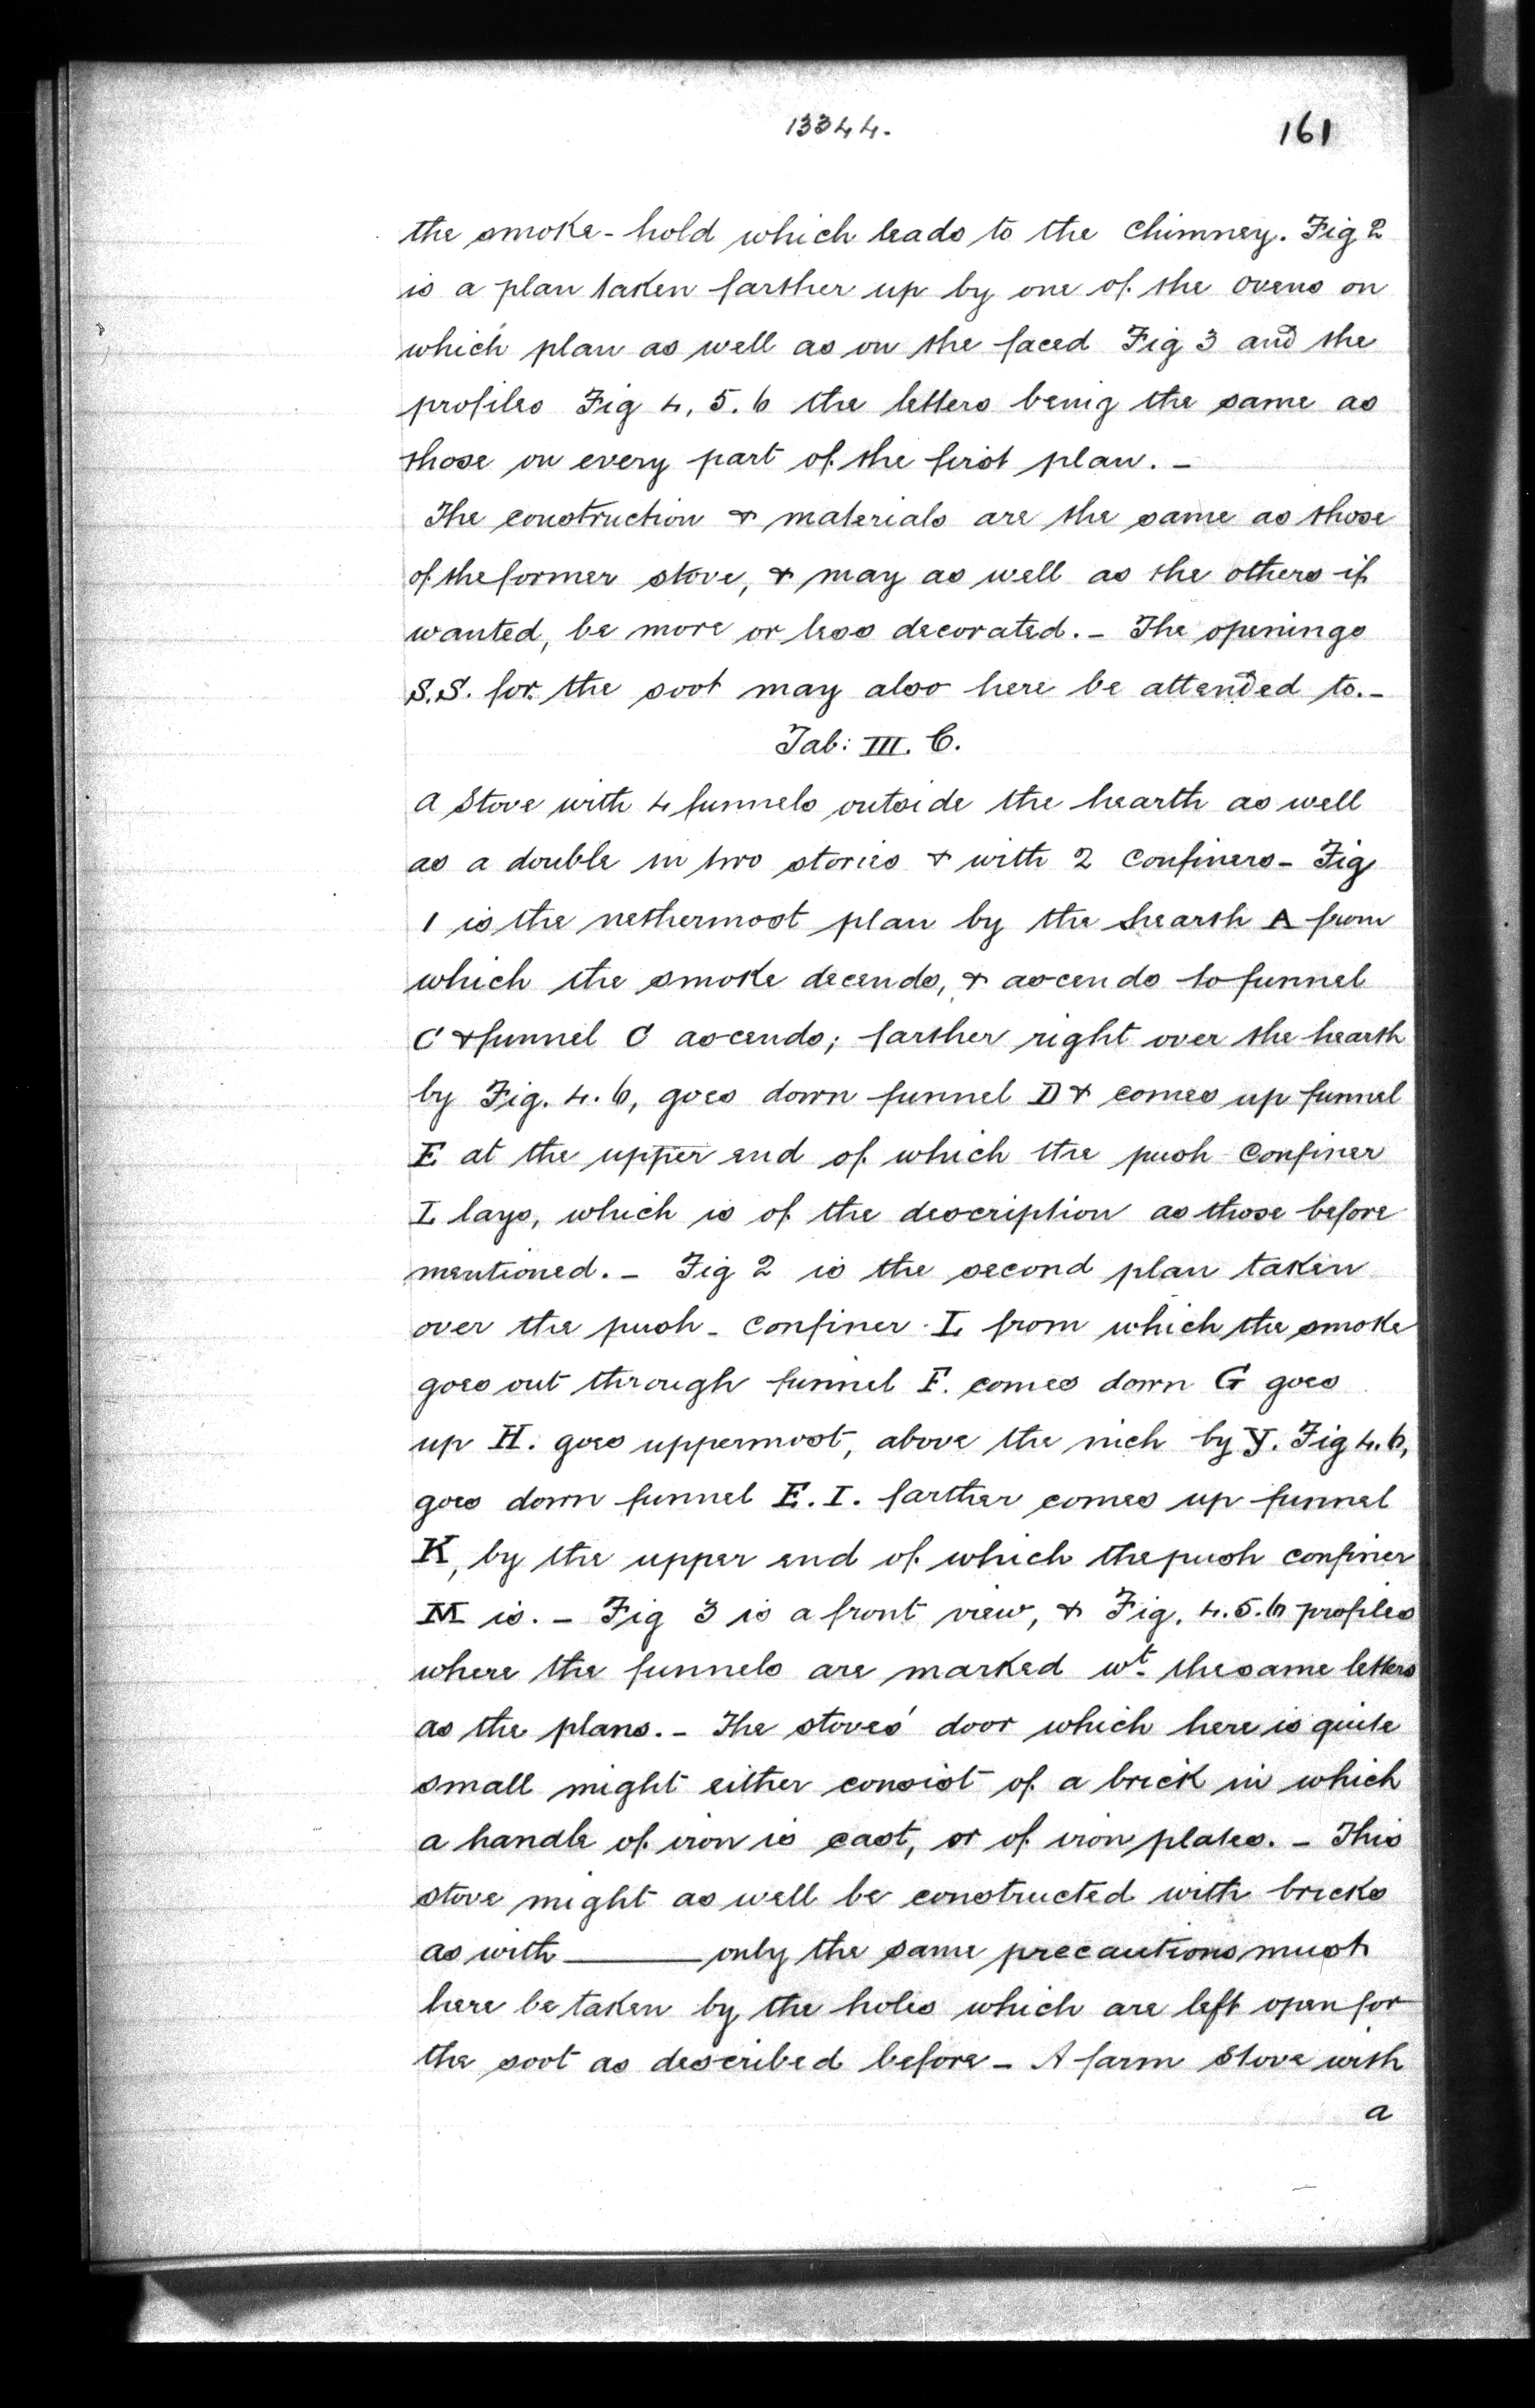 13344.
161
the smoke-hold which leads to the Chimney. Fig 2
is a plan taken farther up by one of the ovens on
which plan as well as on the faced Fig 3 and the
profiles Fig 4, 5. 6 the letters being the same as
those on every part of the first plan. -
The construction & materials are the same as those
of the former stove, & may as well as the others if
wanted, be more or less decorated. - The openings
S.S. for the soot may also here be attended to. -
Tab: III. C.
A Stove with 4 funnels outside the hearth as well
as a double in two stories & with 2 Confiners - Fig
1 is the nethermost plan by the hearth A from
which the smoke decends, & ascends to funnel
C & funnel C ascends; farther right over the hearth
by Fig. 4. 6, goes down funnel D & comes up funnel
E at the upper end of which the push Confiner
L lays, which is of the description as those before
mentioned. - Fig 2 is the second plan taken
over the push - Confiner L from which the smoke
goes out through funnel F. comes down G goes
up H. goes uppermost, above the nich by Y. Fig 4. 6,
goes down funnel E. I. farther comes up funnel
K, by the upper end of which the push confiner
M is. - Fig 3 is a front view, & Fig. 4. 5. 6 profiles
where the funnels are marked wt. the same letters
as the plans. - The stoves' door which here is quite
small might either consist of a brick in which
a handle of iron is cast, or of iron plates. - This
stove might as well be constructed with bricks
as with ______ only the same precautions must
here be taken by the holes which are left open for
the soot as described before - A farm Stove with
a